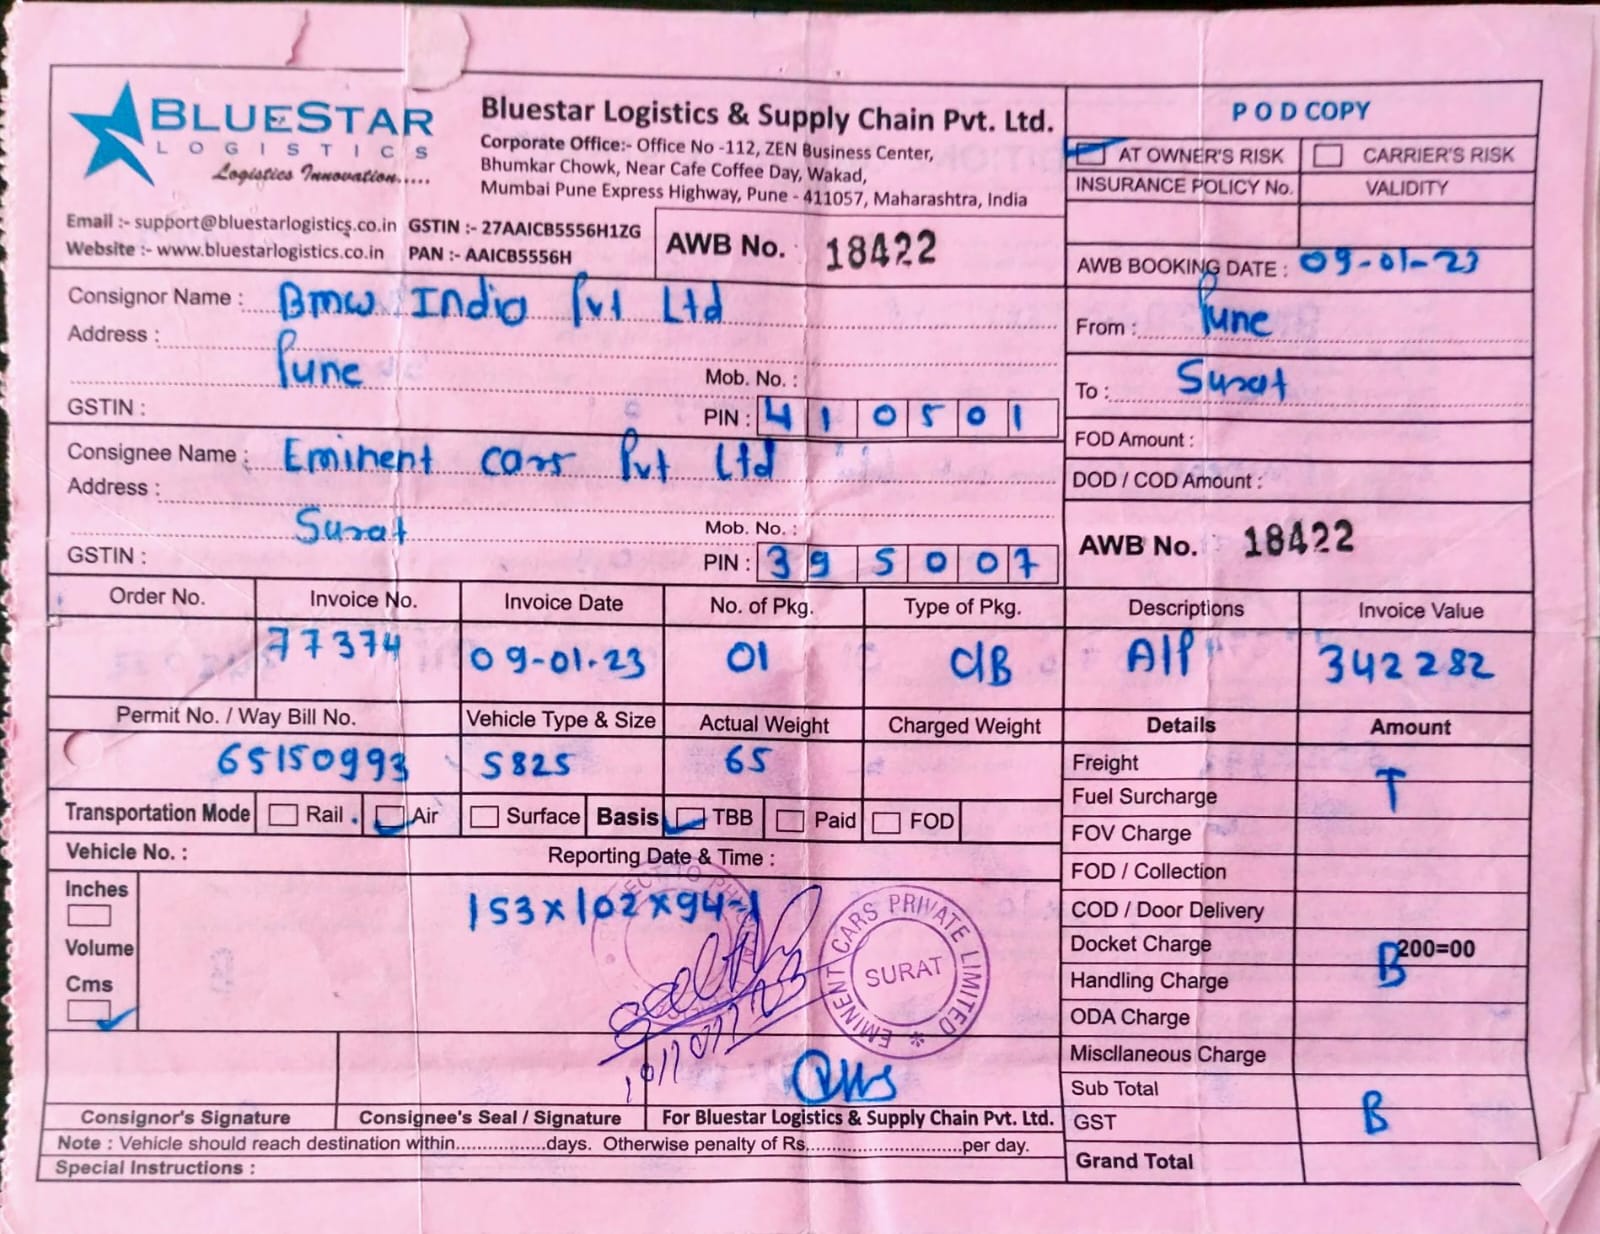 BLUESTAR
LOGISTICS
Logistics Innovation.....
Bluestar Logistics & Supply Chain Pvt. Ltd.
Corporate Office:- Office No -112, ZEN Business Center,
Bhumkar Chowk, Near Cafe Coffee Day, Wakad,
Mumbai Pune Express Highway, Pune - 411057, Maharashtra, India
Email :- support@bluestarlogistics.co.in GSTIN :- 27AAICB5556H1ZG
Website :- www.bluestarlogistics.co.in PAN :- AAICB5556H
AWB No. 18422
POD COPY
AT OWNER'S RISK CARRIER'S RISK
INSURANCE POLICY No. VALIDITY
AWB BOOKING DATE : 09-01-23
Consignor Name : Bmw India Pvt Ltd
Address :
Pune Mob. No. :
GSTIN : PIN : 410501
From : Pune
To : Surat
Consignee Name : Eminent cars Pvt Ltd
Address :
Surat Mob. No. :
GSTIN : PIN : 395007
FOD Amount :
DOD / COD Amount :
AWB No. : 18422
Order No. Invoice No. Invoice Date No. of Pkg. Type of Pkg. Descriptions Invoice Value
77374 09-01-23 01 CIB AIP 342282
Permit No. / Way Bill No. Vehicle Type & Size Actual Weight Charged Weight Details Amount
65150993 5825 65
Freight
Fuel Surcharge T
Transportation Mode Rail Air Surface Basis TBB Paid FOD
FOV Charge
Vehicle No. : Reporting Date & Time :
FOD / Collection
Inches
153x102x94-1
COD / Door Delivery
Volume
Docket Charge 200=00
Cms
Handling Charge B
EMINENT CARS PRIVATE LIMITED
SURAT
ODA Charge
Miscllaneous Charge
Sub Total
Consignor's Signature Consignee's Seal / Signature For Bluestar Logistics & Supply Chain Pvt. Ltd.
GST B
Note : Vehicle should reach destination within...............days. Otherwise penalty of Rs...........................per day.
Grand Total
Special Instructions :